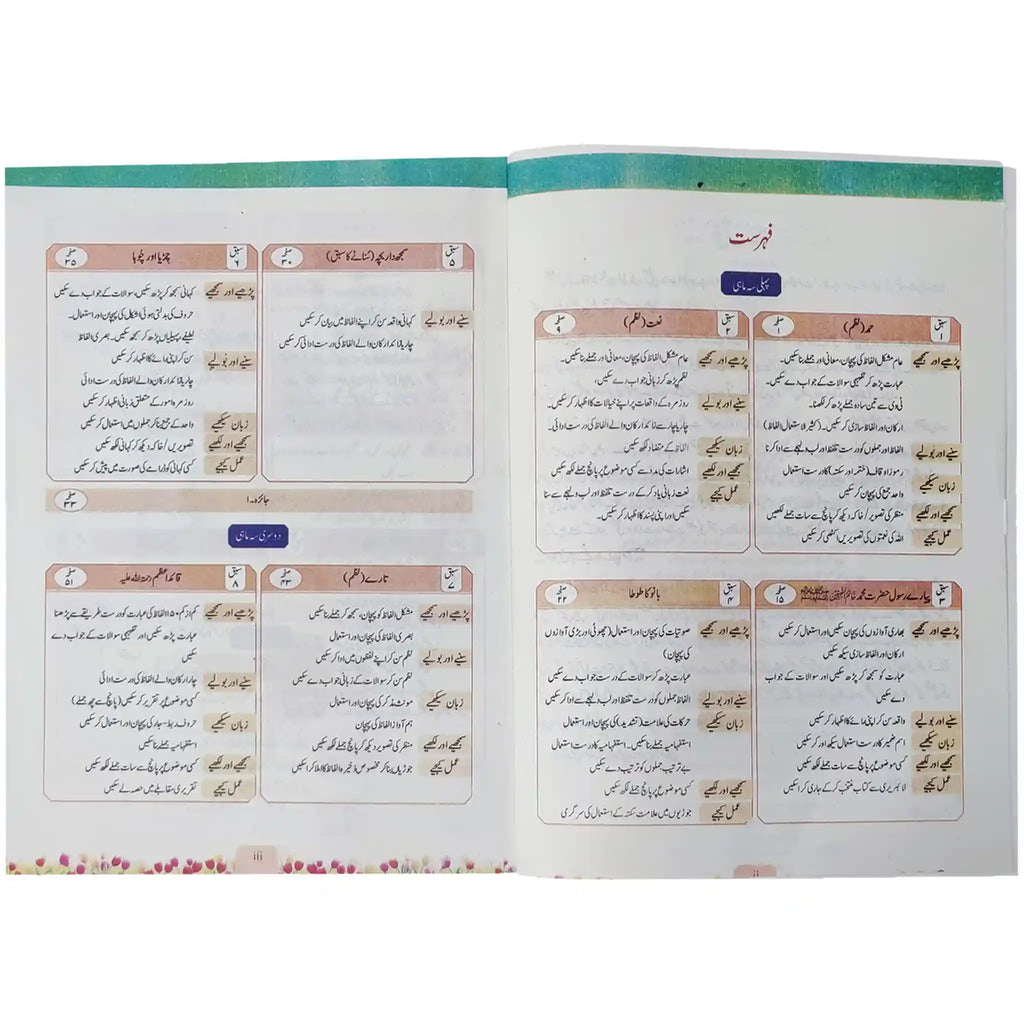 فہرست
پہلی سہ ماہی
سبق ۱
حمد (نظم)
صفحہ ۱
پڑھیے اور سمجھیے
عام مشکل الفاظ کی پہچان، معانی اور جملے بنا سکیں۔
عبارت پڑھ کر تفہیمی سوالات کے جواب دے سکیں۔
ٹی وی سے تین سادہ جملے پڑھ کر لکھنا۔
ارکان اور الفاظ سازی کر سکیں۔ (کثیر الاستعمال الفاظ)
سنیے اور بولیے
الفاظ اور جملوں کو درست تلفظ اور لب و لہجے سے ادا کرنا
زبان سیکھیے
رموز اوقاف (ختمہ اور سکتہ) کا درست استعمال
واحد جمع کی پہچان کر سکیں
سمجھیے اور لکھیے
منظر کی تصویر / خاکہ دیکھ کر پانچ سے سات جملے لکھیں
عمل کیجیے
اللہ کی نعمتوں کی تصویریں اکٹھی کر سکیں
سبق ۲
نعت (نظم)
صفحہ ۹
پڑھیے اور سمجھیے
عام مشکل الفاظ کی پہچان، معانی اور جملے بنا سکیں۔
نظم پڑھ کر زبانی جواب دے سکیں،
سنیے اور بولیے
روزمرہ کے واقعات پر اپنے خیالات کا اظہار کر سکیں۔
چار یا چار سے زائد ارکان والے الفاظ کی درست ادائی۔
زبان سیکھیے
الفاظ کے متضاد لکھ سکیں
سمجھیے اور لکھیے
اشارات کی مدد سے کسی موضوع پر پانچ جملے لکھ سکیں
عمل کیجیے
نعت زبانی یاد کر کے درست تلفظ اور لب و لہجے سے سنا
سکیں اور اپنی پسند کا اظہار کر سکیں۔
سبق ۳
پیارے رسول حضرت محمد خاتم النبیین ﷺ
صفحہ ۱۵
پڑھیے اور سمجھیے
بھاری آوازوں کی پہچان سکیں اور استعمال کر سکیں
ارکان اور الفاظ سازی سیکھ سکیں
عبارت کو سمجھ کر پڑھ سکیں اور سوالات کے جواب
دے سکیں
سنیے اور بولیے
واقعہ سن کر اپنی رائے کا اظہار کر سکیں
زبان سیکھیے
اسم ضمیر کا درست استعمال سیکھ اور کر سکیں
سمجھیے اور لکھیے
کسی موضوع پر پانچ سے سات جملے لکھ سکیں
عمل کیجیے
لائبریری سے کتاب منتخب کر کے جاری کرا سکیں
سبق ۴
بانو کا طوطا
صفحہ ۲۲
پڑھیے اور سمجھیے
صوتیات کی پہچان اور استعمال (چھوٹی اور بڑی آوازوں
کی پہچان)
عبارت پڑھ کر سوالات کے جواب دے سکیں
سنیے اور بولیے
الفاظ جملوں کو درست تلفظ اور لب و لہجے سے ادا کر سکیں
زبان سیکھیے
حرکات کی علامت (تشدید) کی پہچان اور استعمال
استفہامیہ جملے بنا سکیں۔ استفہامیہ کا درست استعمال
بے ترتیب جملوں کو ترتیب دے سکیں
سمجھیے اور لکھیے
کسی موضوع پر پانچ جملے لکھ سکیں
عمل کیجیے
جوڑیوں میں علامت سکتہ کے استعمال کی سرگرمی
ii
سبق ۵
سمجھ دار بچہ (سُنانے کا سبق)
صفحہ ۳۰
سنیے اور بولیے
کہانی واقعہ سن کر اپنے الفاظ میں بیان کر سکیں
چار یا زائد ارکان والے الفاظ کی درست ادائی کر سکیں
سبق ۶
چڑیا اور چُوہا
صفحہ ۳۵
پڑھیے اور سمجھیے
کہانی سمجھ کر پڑھ سکیں، سوالات کے جواب دے سکیں
حروف کی بدلتی ہوئی اشکال کی پہچان اور استعمال۔
لطیفے، پہیلیاں پڑھ کر سمجھ سکیں۔ بصری الفاظ
سنیے اور بولیے
سن کر اپنی رائے کا اظہار کر سکیں
چار یا زائد ارکان والے الفاظ کی درست ادائی
روزمرہ امور کے متعلق زبانی اظہار کر سکیں
زبان سیکھیے
واحد کے جمع بنا کر جملوں میں استعمال کر سکیں
سمجھیے اور لکھیے
تصویریں / خاکہ دیکھ کر کہانی لکھ سکیں
عمل کیجیے
کسی کہانی کو ڈرامے کی صورت میں پیش کر سکیں
جائزہ۔۱
صفحہ ۴۳
دوسری سہ ماہی
سبق ۷
تارے (نظم)
صفحہ ۴۳
پڑھیے اور سمجھیے
مشکل الفاظ کو پہچان، سمجھ کر جملے بنا سکیں
بصری الفاظ کی پہچان اور استعمال
سنیے اور بولیے
نظم سن کر اپنے لفظوں میں ادا کر سکیں
نظم سن کر سوالات کے زبانی جواب دے سکیں
زبان سیکھیے
مونث مذکر کی پہچان اور استعمال
ہم آواز الفاظ کی پہچان
سمجھیے اور لکھیے
منظر کی تصویر دیکھ کر پانچ جملے لکھ سکیں
عمل کیجیے
جوڑیاں بنا کر مخصوص ذخیرہ الفاظ کا املا کرا سکیں
سبق ۸
قائد اعظم رحمۃ اللہ علیہ
صفحہ ۵۱
پڑھیے اور سمجھیے
کم از کم ۵۰ الفاظ کی عبارت کو درست طریقے سے پڑھنا
عبارت پڑھ سکیں اور تفہیمی سوالات کے جواب دے
سکیں
سنیے اور بولیے
چار ارکان والے الفاظ کی درست ادائی
کسی موضوع پر تقریر کر سکیں (پانچ سے چھ جملے)
زبان سیکھیے
حروف ربط- جار کی پہچان اور استعمال کر سکیں
استفہامیہ جملے بنا سکیں
سمجھیے اور لکھیے
کسی موضوع پر پانچ سے سات جملے لکھ سکیں
عمل کیجیے
تقریری مقابلے میں حصہ لے سکیں
iii